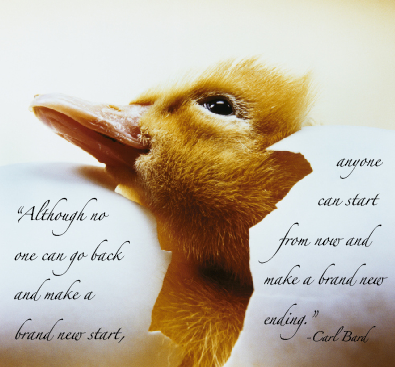 “Although no
one can go back
and make a
brand new start,
anyone
can start
from now and
make a brand new
ending.”
-Carl Bard